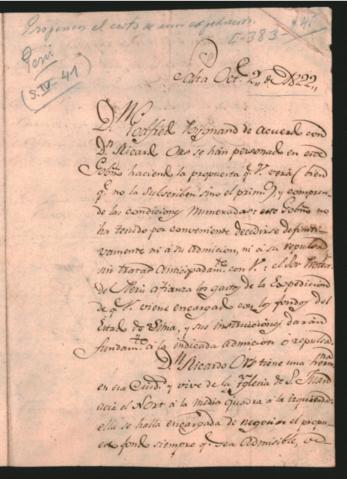 Proponen el costo de una expedicion.
E-383-
41
Perú
(S.IV-41)
Salta Oct.e 2,, de 1822,,
D.n
de acuerdo con
D.n Ricard Orr se hán personad en este
Gob.no haciend la propuesta q.e V. verá (bien
q.e no la subscriben sino el prim.o), y compren-
de las condiciones numeradas: este Gob.no no
ha tenido por conveniente decidirse definiti-
vamente ni á su admicion, ni á su repulsa
sin tratar anticipadam.te con V.: el Sor
de Perú afianza los gastos de la Expedicion
de q.e V. viene encargad con los fondos del
Estad de Lima, y sus instrucciones darán
fundam.to á la indicada admicion o repulsa.
D.n Ricardo Orr tiene una
en esa Ciud. y vive de la Yglesia de S.
acia el Nort á la media quadra á la izquierda:
ella se halla encargada de negociar el propu-
esto fond siempre q.e sea admisible,